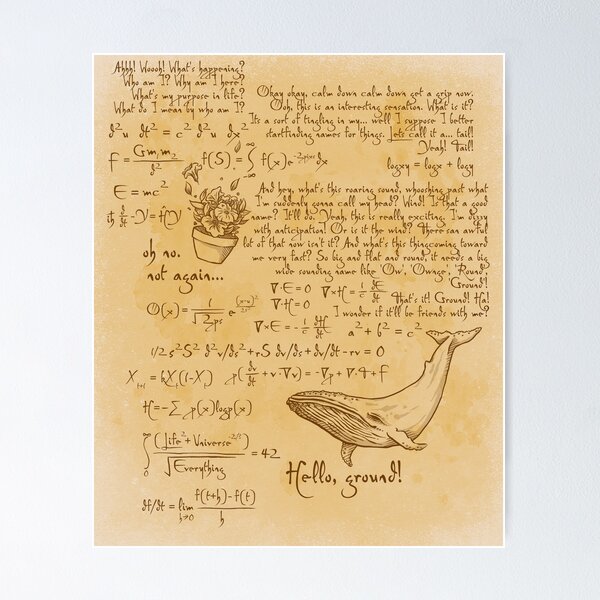 Ahhh! Woooh! What's happening?
Who am I? Why am I here?
What's my purpose in life?
What do I mean by who am I?
Okay okay, calm down calm down get a grip now.
Ooh, this is an interesting sensation. What is it?
Its a sort of tingling in my... well I suppose I better
startfinding names for things. Lets call it a... tail!
Yeah! Tail!
d²u dt² = c² d²u dx²
f = Gm₁m₂ / d²
f(S) = ∫ f(x)e^-2πixs dx
logxy = logx + logy
E = mc²
iħ d/dt -Y)=Ĥ()Y
And hey, what's this roaring sound, whooshing past what
I'm suddenly gonna call my head? Wind! Is that a good
name? It'll do. Yeah, this is really exciting. I'm dizzy
with anticipation! Or is it the wind? There's an awful
lot of that now isn't it? And what's this thingcoming toward
me very fast? So big and flat and round, it needs a big
wide sounding name like 'Ow', 'Ownge', 'Round',
'Ground'!
That's it! Ground! Ha!
I wonder if it'll be friends with me?
oh no.
not again...
∇·E = 0 ∇×H = 1/c dE/dt
∇·H = 0
∇×E = -1/c dH/dt
a² + b² = c²
1/2 s²S² d²v/ds² + rS dv/ds + dv/dt - rv = 0
Xₜ₊₁ = kXₜ(1-Xₜ)
ρ(dv/dt + v·∇v) = -∇p + ∇·T + f
H = -∑ p(x)logp(x)
∫ (Life² + Universe^-2/3) / √Everything = 42
Hello, ground!
df/dt = lim h→0 f(t+h)-f(t) / h